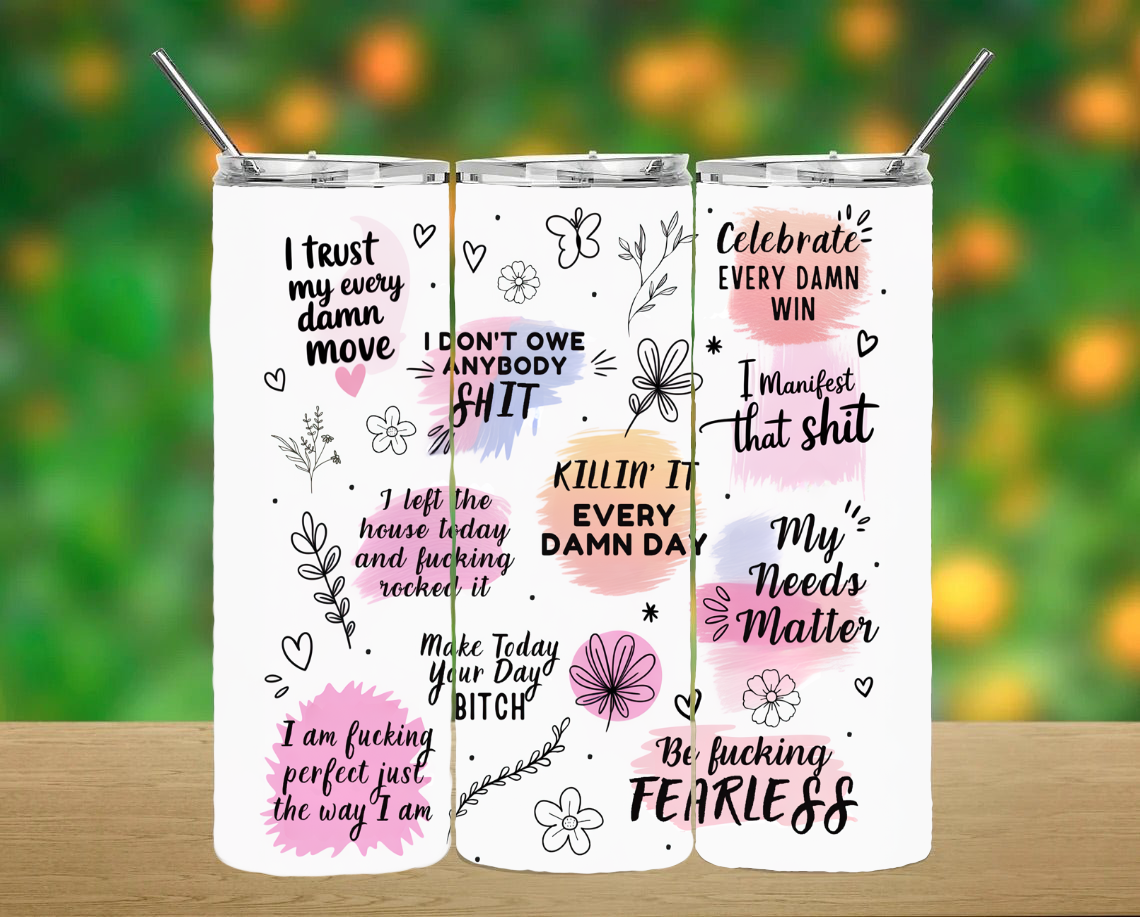 I TRUST
my every
damn
move
I DON'T OWE
ANYBODY
SHIT
I left the
house today
and fucking
rocked it
KILLIN' IT
EVERY
DAMN DAY
Make Today
Your Day
BITCH
I am fucking
perfect just
the way I am
Celebrate
EVERY DAMN
WIN
I Manifest
that shit
My
Needs
Matter
Be fucking
FEARLESS